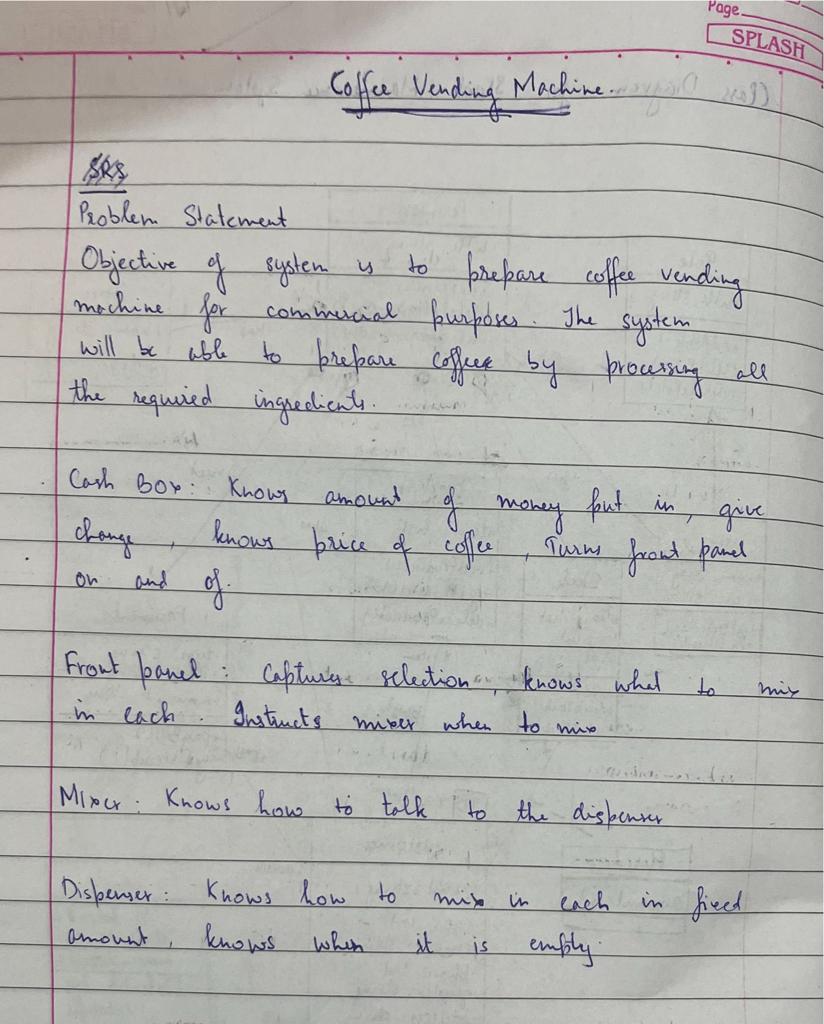 Page
SPLASH
Coffee Vending Machine.
SRS
Problem Statement
Objective of system is to prepare coffee vending
machine for commercial purposes. The system
will be able to prepare coffee by processing all
the required ingredients.
Cash Box: Knows amount of money put in, give
change, knows price of coffee, Turns front panel
on and of.
Front panel: Captures selection, knows what to mix
in each. Instucts mixer when to mix
Mixer: Knows how to talk to the dispenser
Dispenser: Knows how to mix in each in fixed
amount, knows when it is empty.